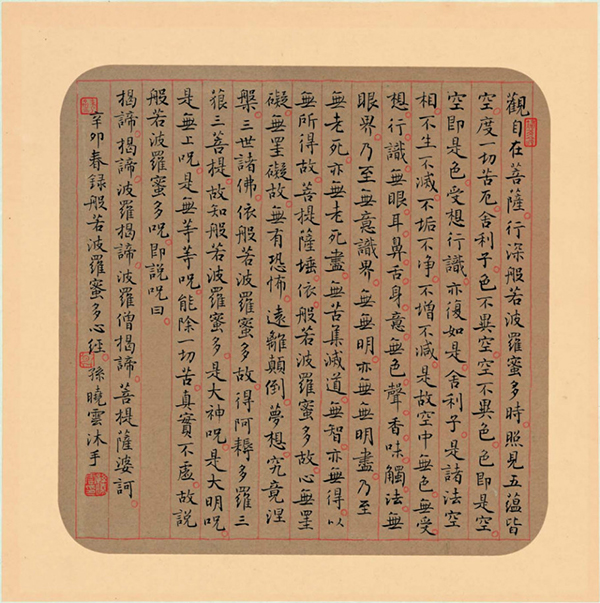 觀自在菩薩行深般若波羅蜜多時照見五蕴皆
空度一切苦厄舍利子色不異空空不異色色即是空
空即是色受想行識亦復如是舍利子是諸法空
相不生不滅不垢不净不增不减是故空中無色無受
想行識無眼耳鼻舌身意無色聲香味觸法無
眼界乃至無意識界無無明亦無無明盡乃至
無老死亦無老死盡無苦集滅道無智亦無得以
無所得故菩提薩埵依般若波羅蜜多故心無罣
礙無罣礙故無有恐怖遠離顛倒夢想究竟涅
槃三世諸佛依般若波羅蜜多故得阿耨多羅三
藐三菩提故知般若波羅蜜多是大神咒是大明咒
是無上咒是無等等咒能除一切苦真實不虛故說
般若波羅蜜多咒即說咒曰
揭諦揭諦波羅揭諦波羅僧揭諦菩提薩婆訶
辛卯春録般若波羅蜜多心經孫曉雲沐手